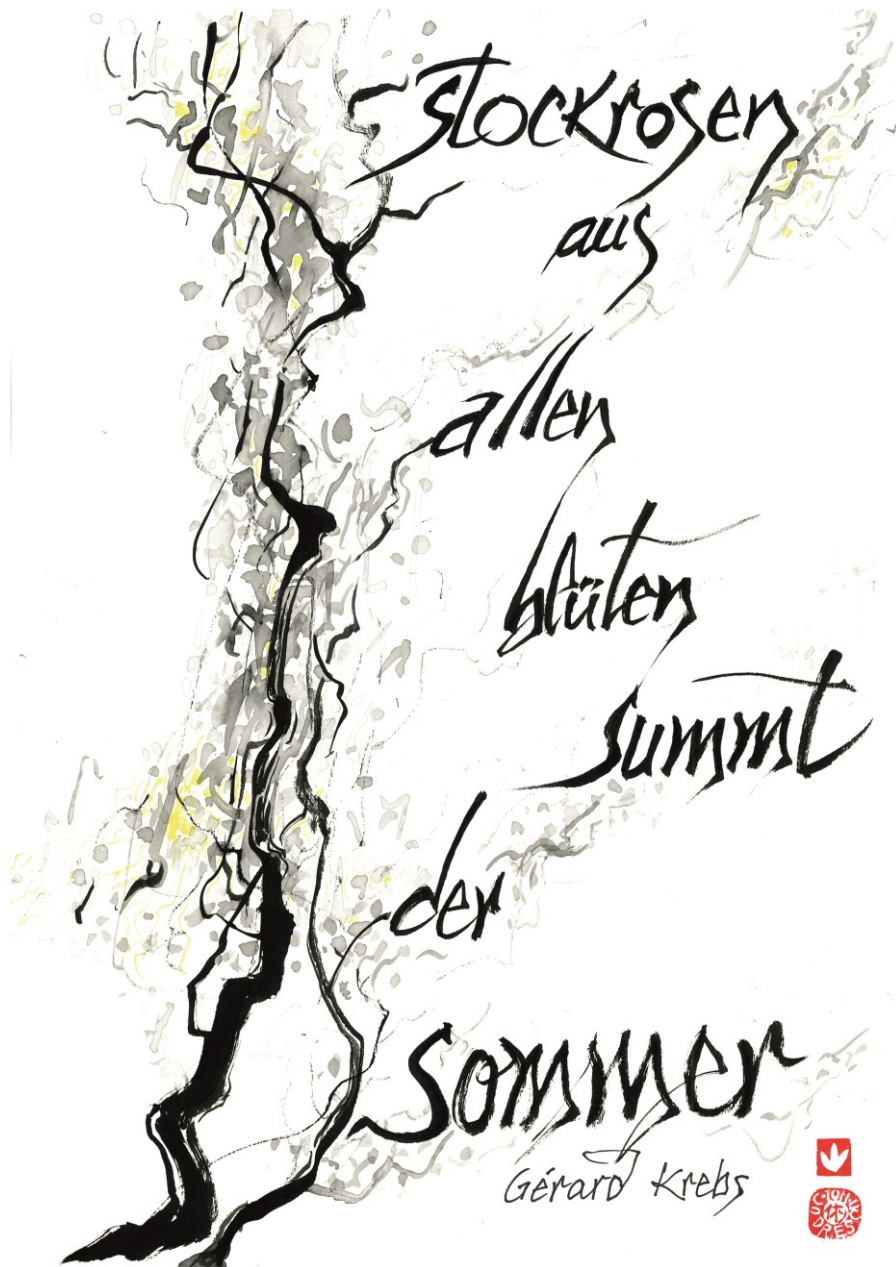 stockrosen
aus
allen
blüten
summt
der
sommer
Gérard Krebs